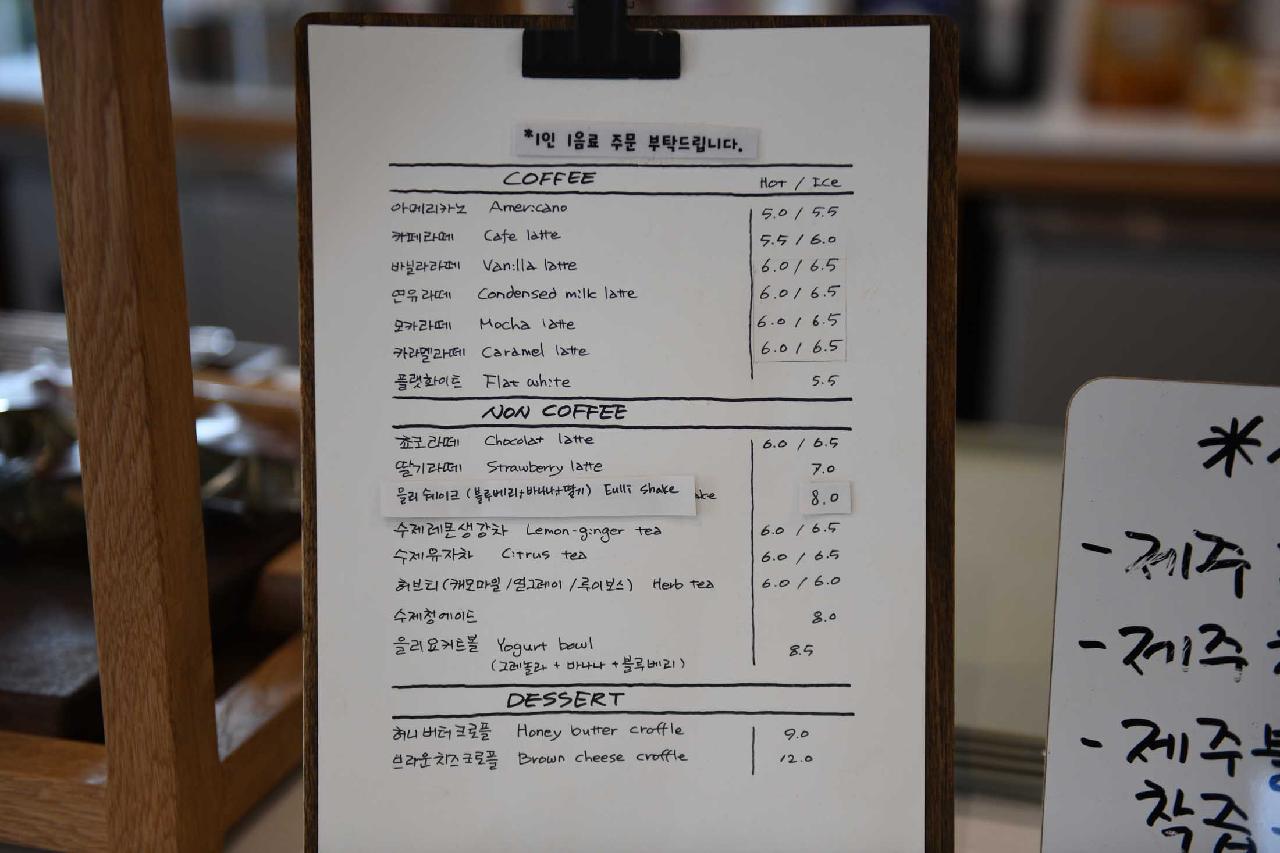 *1인 1음료 주문 부탁드립니다.
COFFEE HOT / ICE
아메리카노 Americano 5.0 / 5.5
카페라떼 Cafe latte 5.5 / 6.0
바닐라라떼 Vanilla latte 6.0 / 6.5
연유라떼 Condensed milk latte 6.0 / 6.5
모카라떼 Mocha latte 6.0 / 6.5
카라멜라떼 Caramel latte 6.0 / 6.5
플랫화이트 Flat white 5.5
NON COFFEE
쵸코라떼 Chocolat latte 6.0 / 6.5
딸기라떼 Strawberry latte 7.0
을리쉐이크 (블루베리+바나나+딸기) Eulli shake ake 8.0
수제레몬생강차 Lemon-ginger tea 6.0 / 6.5
수제유자차 Citrus tea 6.0 / 6.5
허브티(캐모마일/얼그레이/루이보스) Herb tea 6.0 / 6.0
수제청에이드 8.0
을리요거트볼 Yogurt bowl 8.5
(그래놀라 + 바나나 + 블루베리)
DESSERT
허니버터크로플 Honey butter croffle 9.0
브라운치즈크로플 Brown cheese croffle 12.0
*
- 제주
- 제주
- 제주
착즙